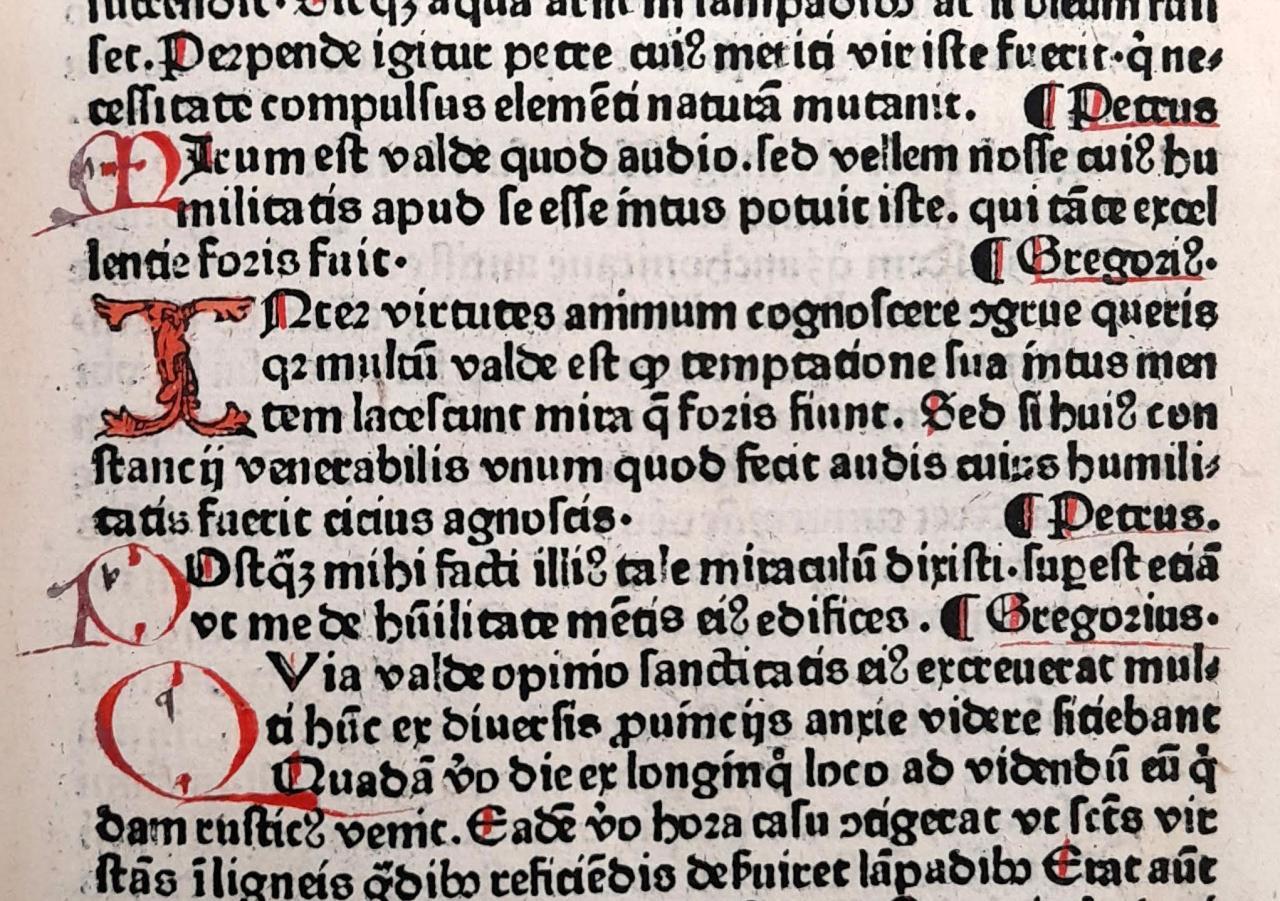 succendit. Sicq́ꝫ aqua arsit in lampadibꝰ ac si oleum fuis
set. Perpende igitur petre cuiꝰ meriti vir iste fuerit. q̇ ne⸗
cessitate compulsus elemēti naturā mutauit. ¶ Petrus
MIrum est valde quod audio. sed vellem nosse cuiꝰ hu
militatis apud se esse intus potuit iste. qui tāte excel
lentie foris fuit. ¶ Gregoriꝰ.
INter virtutes animum cognoscere ↄgrue queris
qꝛ multū valde est ꝙ temptatione sua intus men
tem lacescunt mira q̄ foris fiunt. Sed si huiꝰ con
stancij venerabilis vnum quod fecit audis cuius humili⸗
tatis fuerit cicius agnoscis. ¶ Petrus.
POstq̄ꝫ mihi facti illiꝰ tale miraculū dixisti. suꝑest etiā
vt me de hūilitate mētis eiꝰ edifices. ¶ Gregorius.
QVia valde opinio sanctitatis eiꝰ excreuerat mul⸗
ti hūc ex diuersis ꝓuincijs anxie videre sitiebant
Quadā v̇o die ex longinq̇ loco ad videndū eū q̇
dam rusticꝰ venit. Eadē v̇o hora casu ↄtigerat vt sctēs vir
stās ī ligneis g̊dibꝰ reficiēdis deseruiret lāpadibꝰ Erat aūt